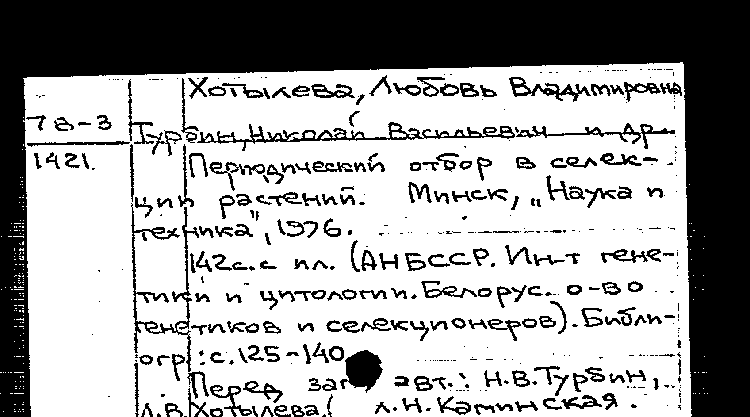 Хотылева, Любовь Владимировна
78-3 Турбин, Николай Васильевич и др.
1421. Периодический отбор в селек-
ции растений. Минск, „Наука и
техника", 1976.
142с. с ил. (АН БССР. Ин-т гене-
тики и цитологии. Белорус. о-во
генетиков и селекционеров). Библи-
огр.: с. 125-140
Перед заг. авт.: Н.В. Турбин,
Л.В. Хотылева, Л.Н. Каминская.